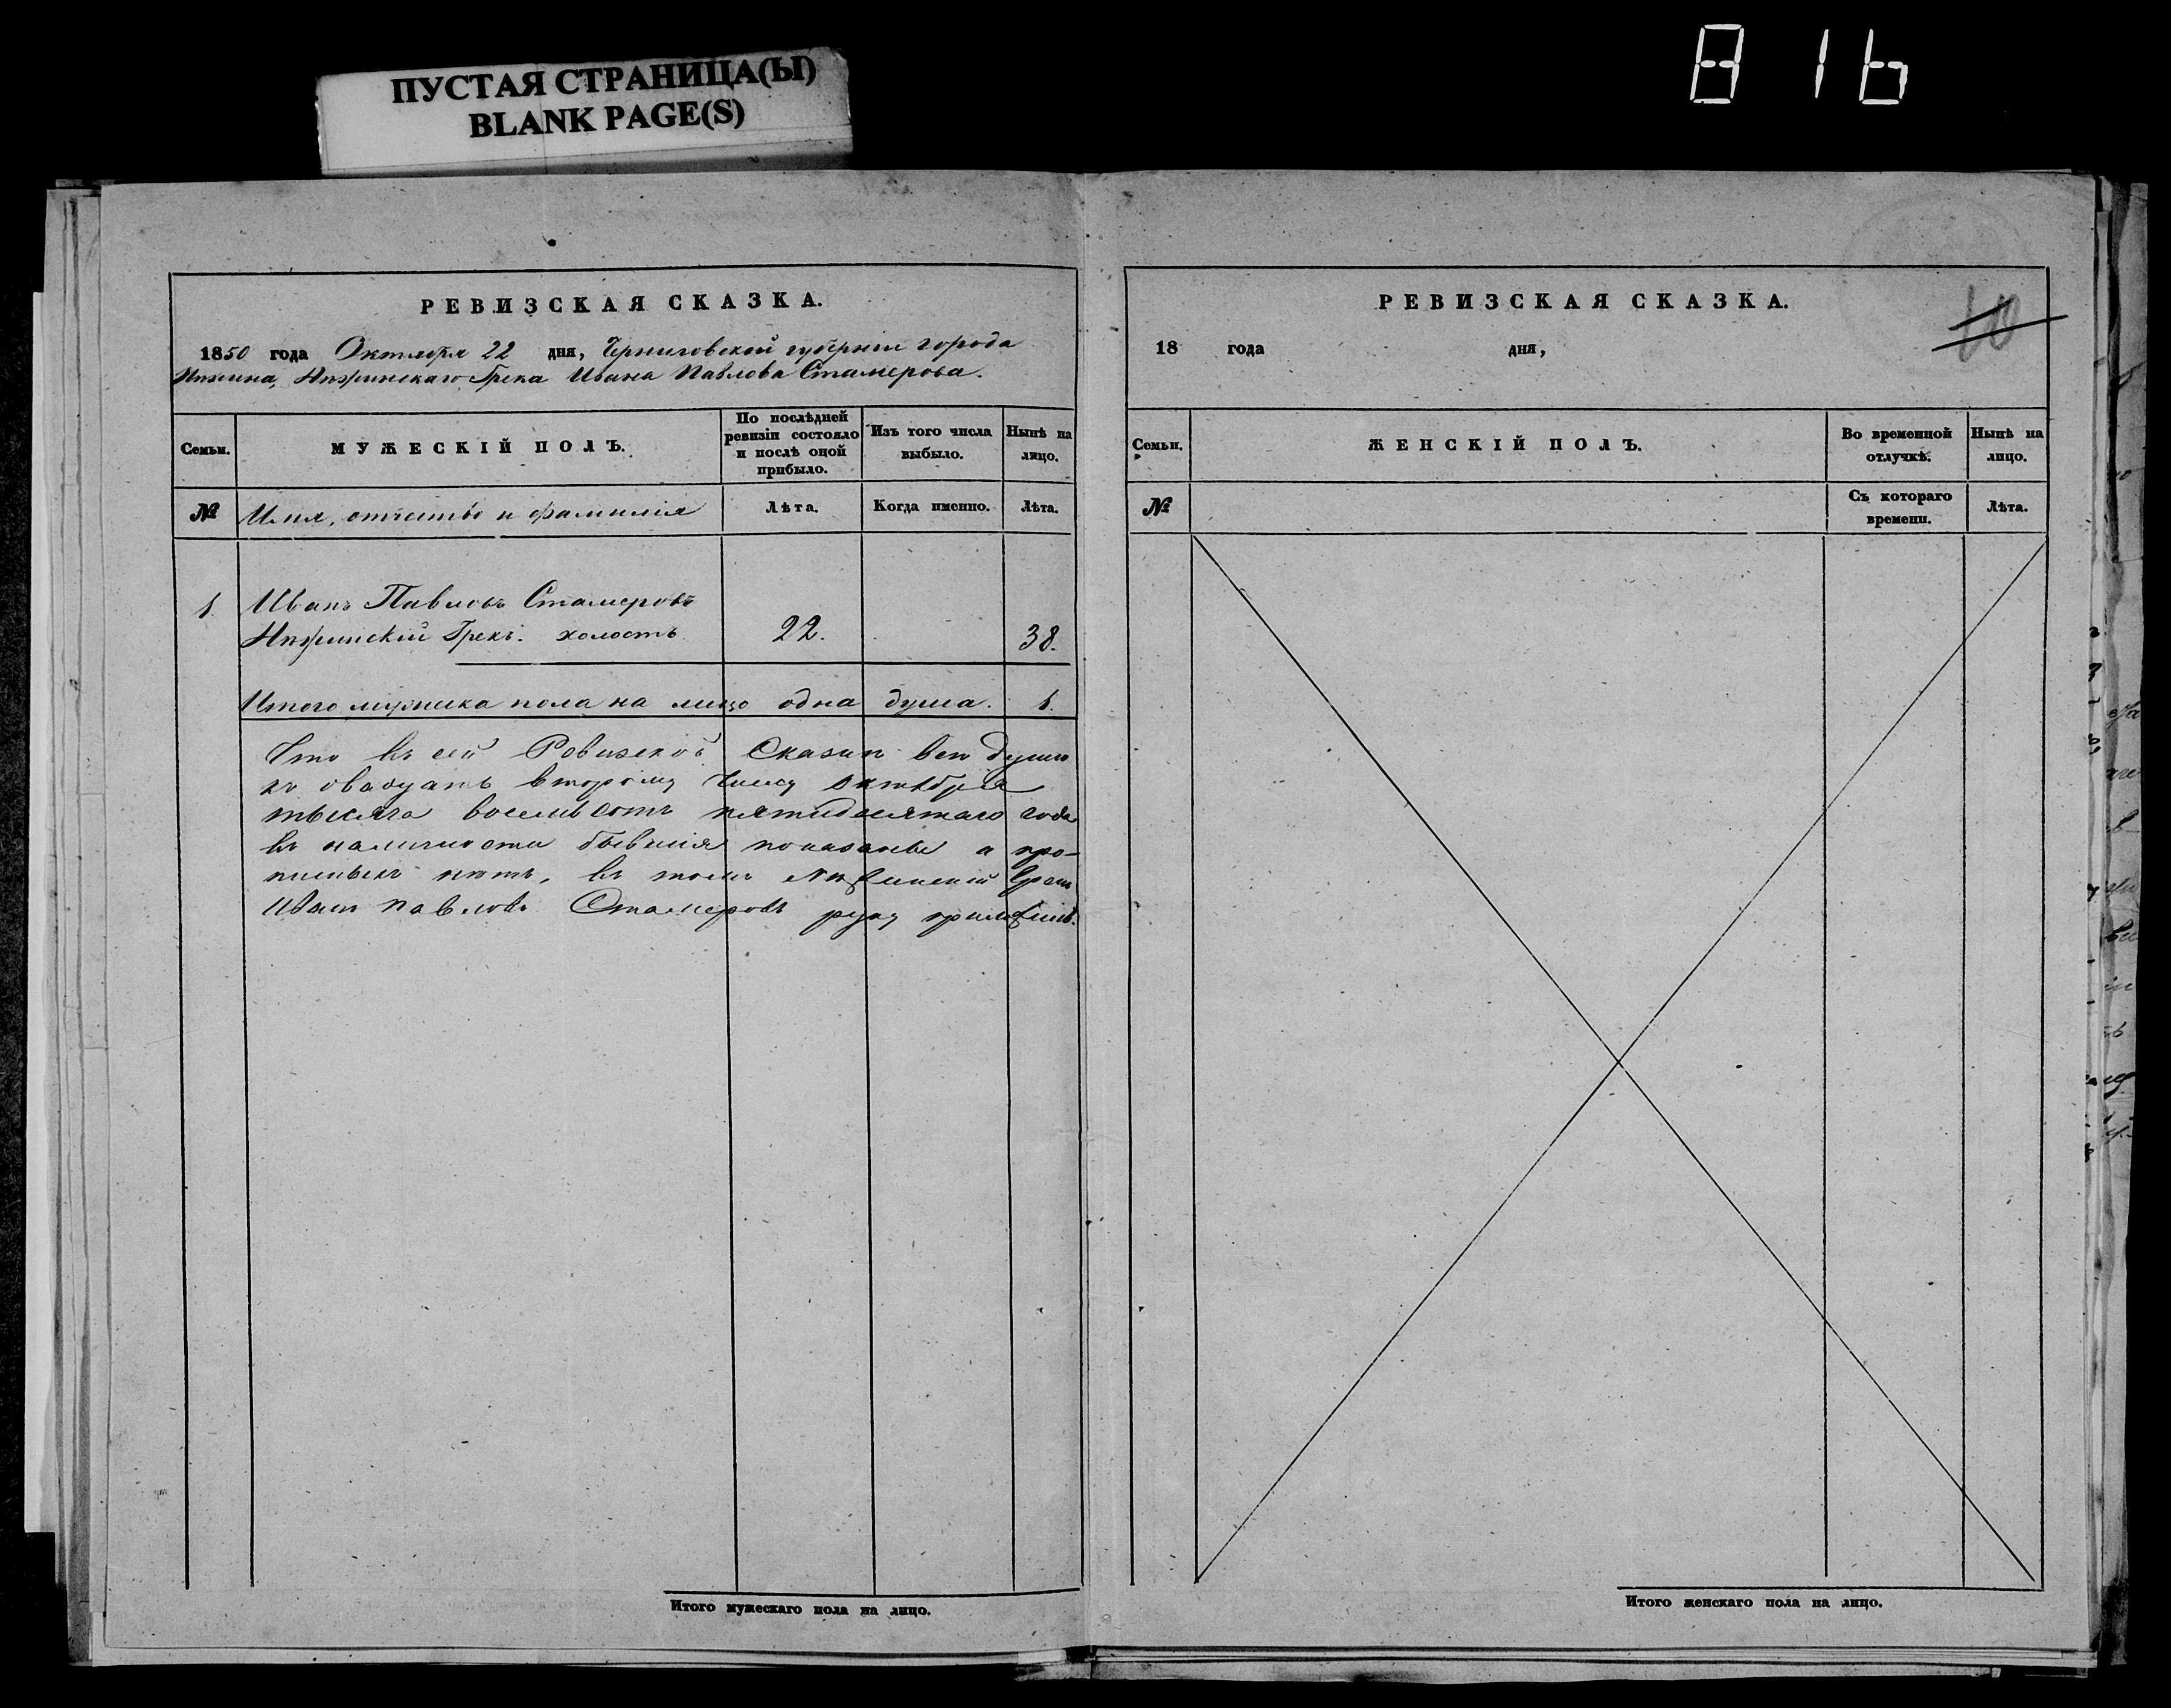 ПУСТАЯ СТРАНИЦА(Ы)
BLANK PAGE(S)
816
РЕВИЗСКАЯ СКАЗКА.
1850 года Октября 22 дня, Черниговской губернии города
Нѣжина, Нѣжинскаго Грека Ивана Павлова Стамерова.
Семьи.
МУЖЕСКІЙ ПОЛЪ.
По послѣдней
ревизіи состояло
и послѣ оной
прибыло.
Изъ того числа
выбыло.
Нынѣ на
лицо.
№
Имя, отчество и фамилія
Лѣта.
Когда именно.
Лѣта.
1. Иванъ Павловъ Стамеровъ
Нѣжинскій Грекъ. холостъ 22. 38.
Итого мужеска пола на лицо одна душа. 1.
Что въ сей Ревизской Сказкѣ всѣ души
къ двадцать второму числу октября
тысяча восемьсотъ пятидесятаго года
въ наличности бывшія показаны а про-
писныхъ нѣтъ, въ томъ Нѣжинскій Грекъ
Иванъ Павловъ Стамеровъ руку приложилъ.
Итого мужескаго пола на лицо.
РЕВИЗСКАЯ СКАЗКА.
60
18 года дня,
Семьи.
ЖЕНСКІЙ ПОЛЪ.
Во временной
отлучкѣ.
Нынѣ на
лицо.
№
Съ котораго
времени.
Лѣта.
Итого женскаго пола на лицо.